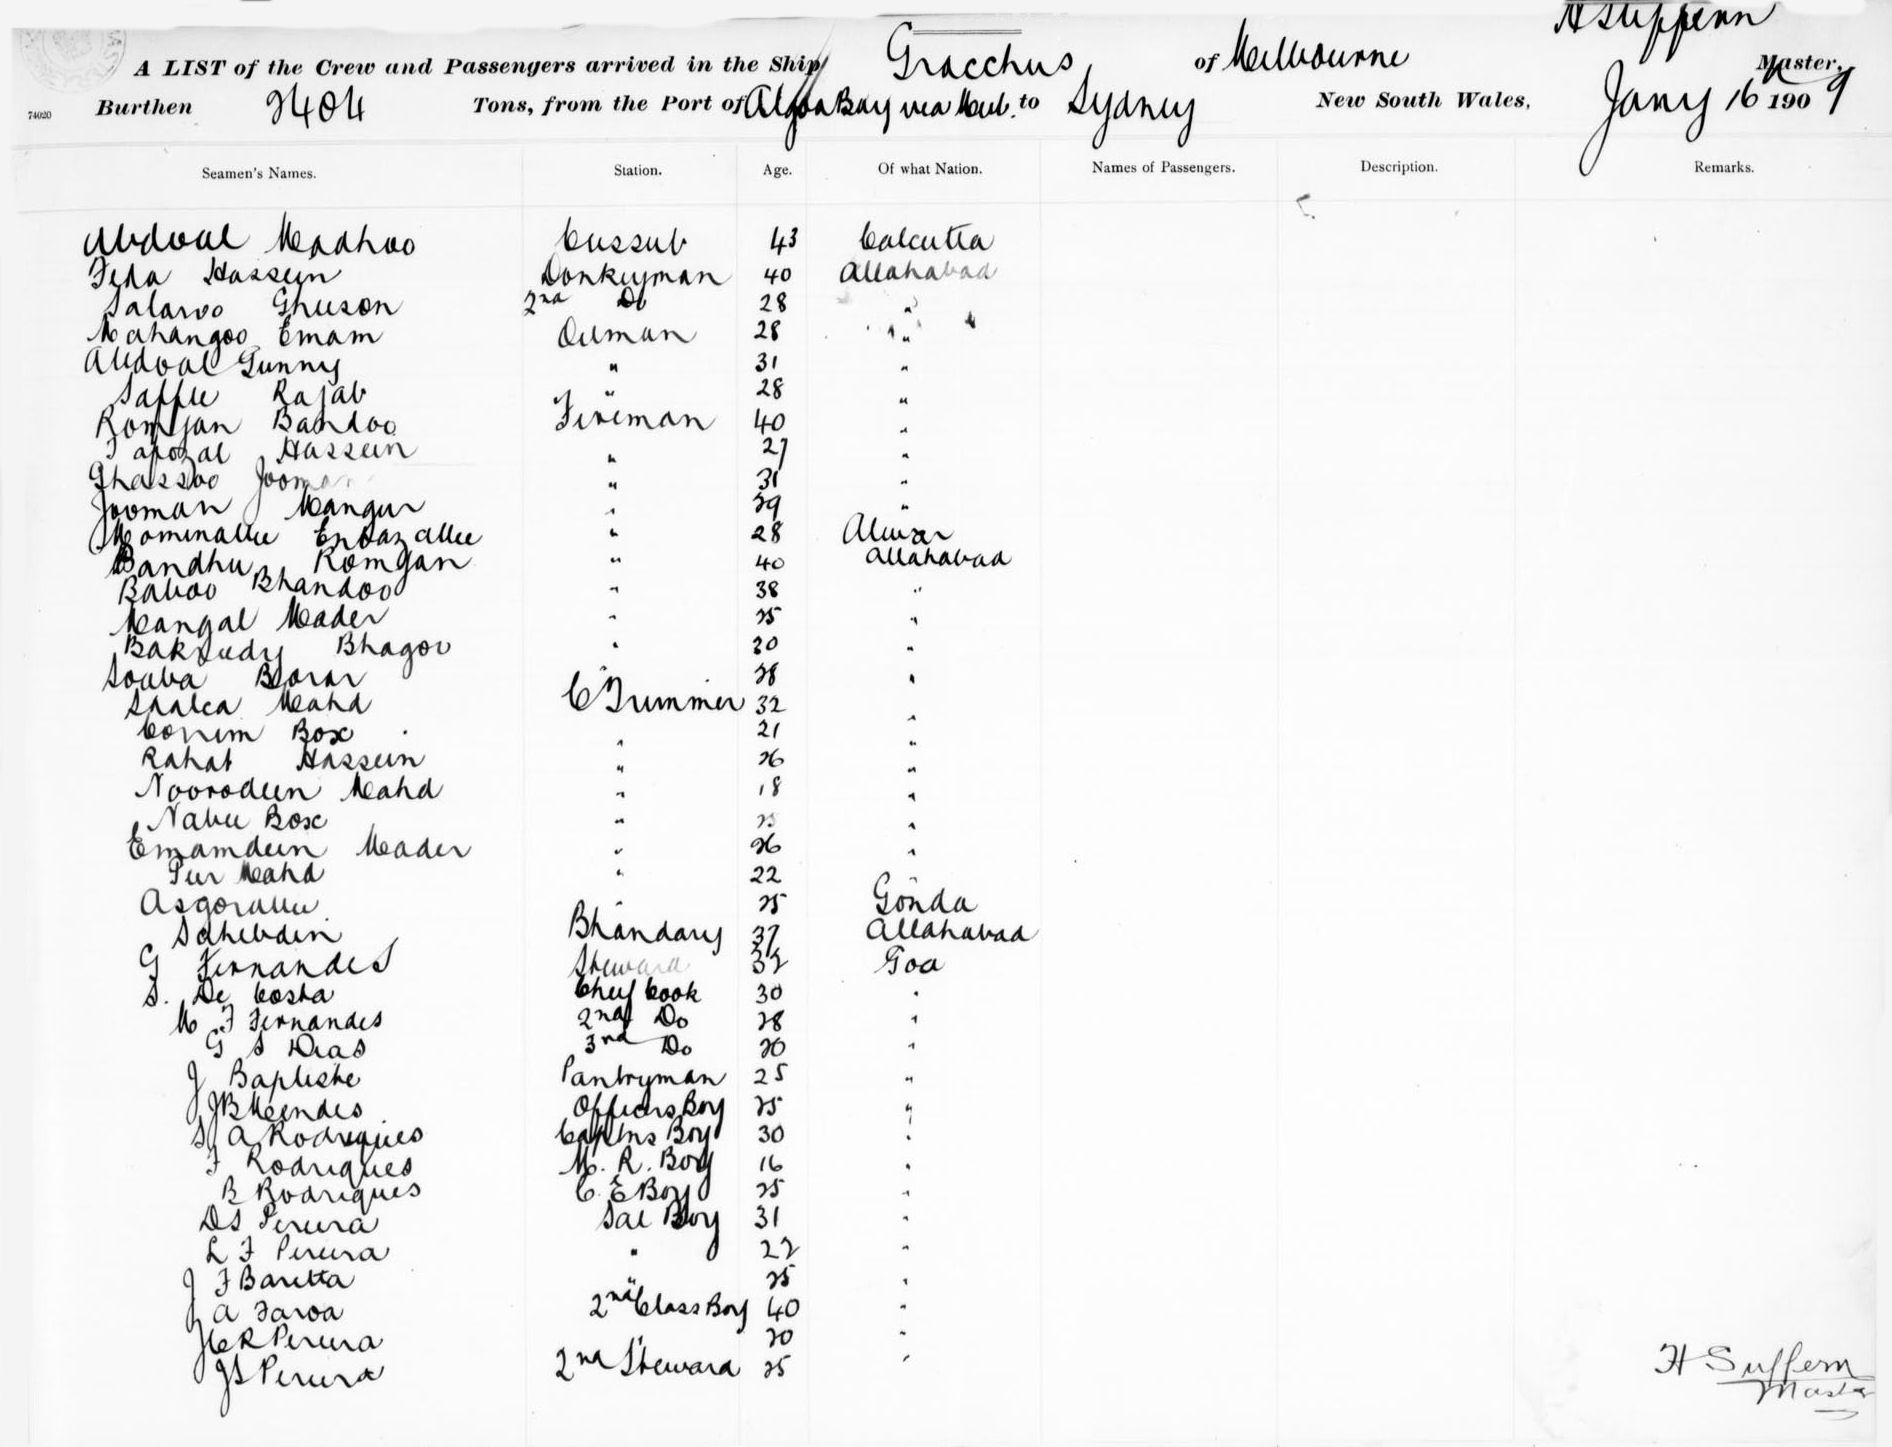 H Suffern
A LIST of the Crew and Passengers arrived in the Ship Gracchus of Melbourne Master,
74020 Burthen 2404 Tons, from the Port of Algoa Bay via Melb. to Sydney New South Wales, Jany 16th 1909
Seamen's Names. Station. Age. Of what Nation. Names of Passengers. Description. Remarks.
Abdool Madhoo Cussub 43 Calcutta
Feda Hassein Donkeyman 40 Allahabad
Salaroo Gheeson 2nd Do 28 "
Mahangoo Emam Oilman 28 "
Abdool Gunny " 31 "
Saffee Rajab " 28 "
Romjan Bandoo Fireman 40 "
Hassein " 27 "
Ghassoo Jooman " 31 "
Jooman Mangur " 29 "
Mominallee " 28 Alwar
Bandhu Romjan " 40 Allahabad
Baboo Bhandoo " 38 "
Mangal Mader " 25 "
Bhagoo " 30 "
Souba " 28 "
Mahd C Trimmer 32 "
Corrim Box " 21 "
Rahat Hassein " 26 "
Noorodeen Mahd " 18 "
Nabee Box " 25 "
Emamdeen Mader " 26 "
Peer Mahd " 22 "
Asgorallee " 25 Gonda
Sahebdin Bhandary 37 Allahabad
G Fernandes Steward 32 Goa
S. De Costa Chief Cook 30 "
M F Fernandes 2nd Do 28 "
G S Dias 3rd Do 20 "
J Baptiste Pantryman 25 "
J B Mendes Officers Boy 25 "
S A Rodrigues Captns Boy 30 "
F Rodrigues M. R. Boy 16 "
B Rodrigues C. E Boy 25 "
D S Pereira Sal Boy 31 "
L F Pereira " 22 "
J F Baretta " 25 "
J A Faroa 2nd Class Boy 40 "
J C R Pereira " 20 "
J S Pereira 2nd Steward 25 "
H Suffern
Master